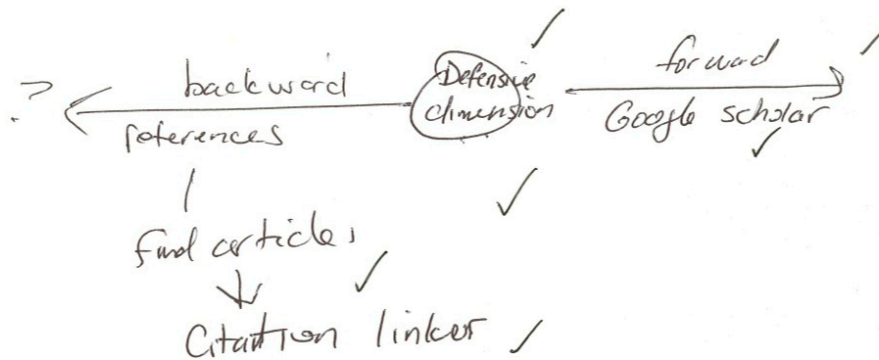 ?
backward
references
Defensive
dimension
forward
Google scholar
find articles
Citation linker